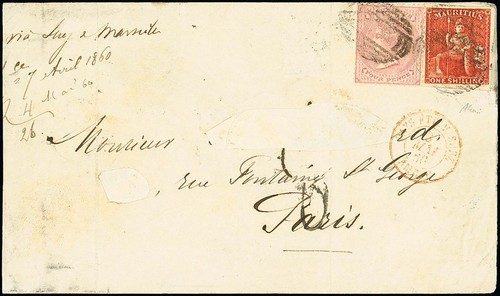 via Suez & Marseille
7 Avril 1860
4 Mai 60
26
FOUR PENCE
MAURITIUS
ONE SHILLING
Monsieur rd
rue Fontaine St George
Paris.